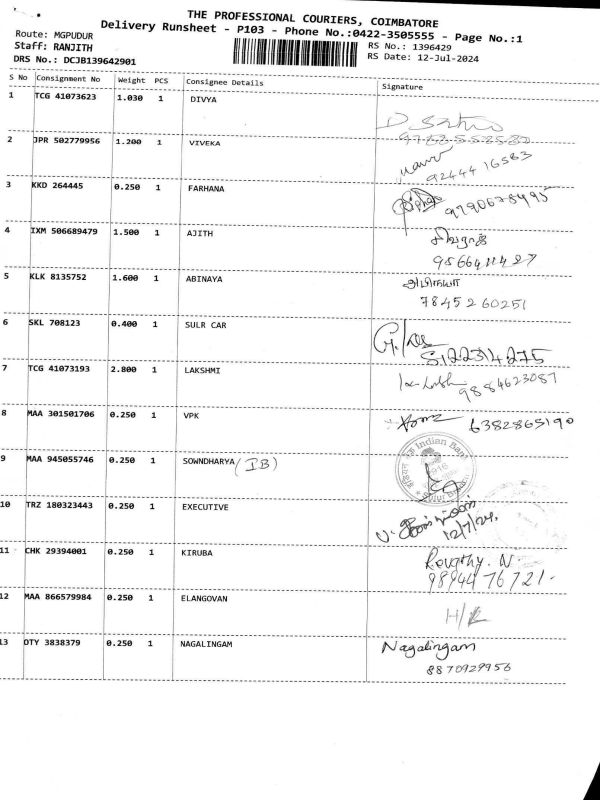 THE PROFESSIONAL COURIERS, COIMBATORE
Delivery Runsheet - P103 - Phone No.:0422-3505555 - Page No.:1
Route: MGPUDUR
RS No.: 1396429
Staff: RANJITH
RS Date: 12-Jul-2024
DRS No.: DCJB139642901
S No Consignment No Weight PCS Consignee Details Signature
1 TCG 41073623 1.030 1 DIVYA
2 JPR 502779956 1.200 1 VIVEKA
9244416583
3 KKD 264445 0.250 1 FARHANA
9790678495
4 IXM 506689479 1.500 1 AJITH
5 KLK 8135752 1.600 1 ABINAYA
அபிநயா
7845260251
6 SKL 708123 0.400 1 SULR CAR
7 TCG 41073193 2.800 1 LAKSHMI
9884623087
8 MAA 301501706 0.250 1 VPK
6382865190
9 MAA 945055746 0.250 1 SOWNDHARYA (IB)
Indian Bank
10 TRZ 180323443 0.250 1 EXECUTIVE
12/7/24
11 CHK 29394001 0.250 1 KIRUBA
9894476721
12 MAA 866579984 0.250 1 ELANGOVAN
13 OTY 3838379 0.250 1 NAGALINGAM
Nagalingam
8870929956